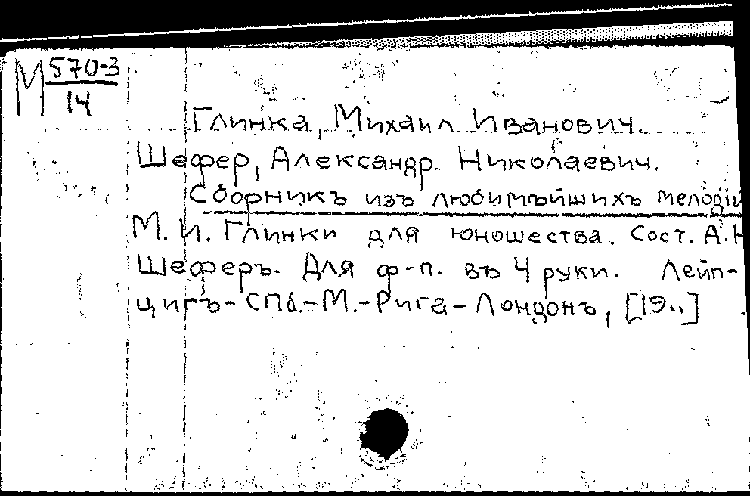 М 570-3
14
Глинка, Михаил Иванович.
Шефер, Александр Николаевич.
Сборникъ изъ любимѣйшихъ мелодій
М. И. Глинки для юношества. Сост. А. Н
Шеферъ. Для ф-п. въ 4 руки. Лейп-
цигъ-СПб.-М.-Рига-Лондонъ, [19..]